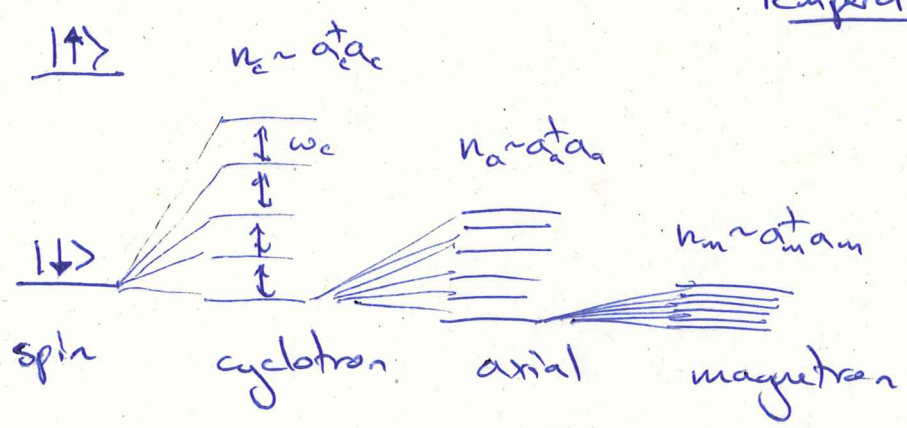 |↑⟩
n_c ~ a_c^† a_c
ω_c
n_a ~ a_a^† a_a
n_m ~ a_m^† a_m
|↓⟩
spin
cyclotron
axial
magnetron